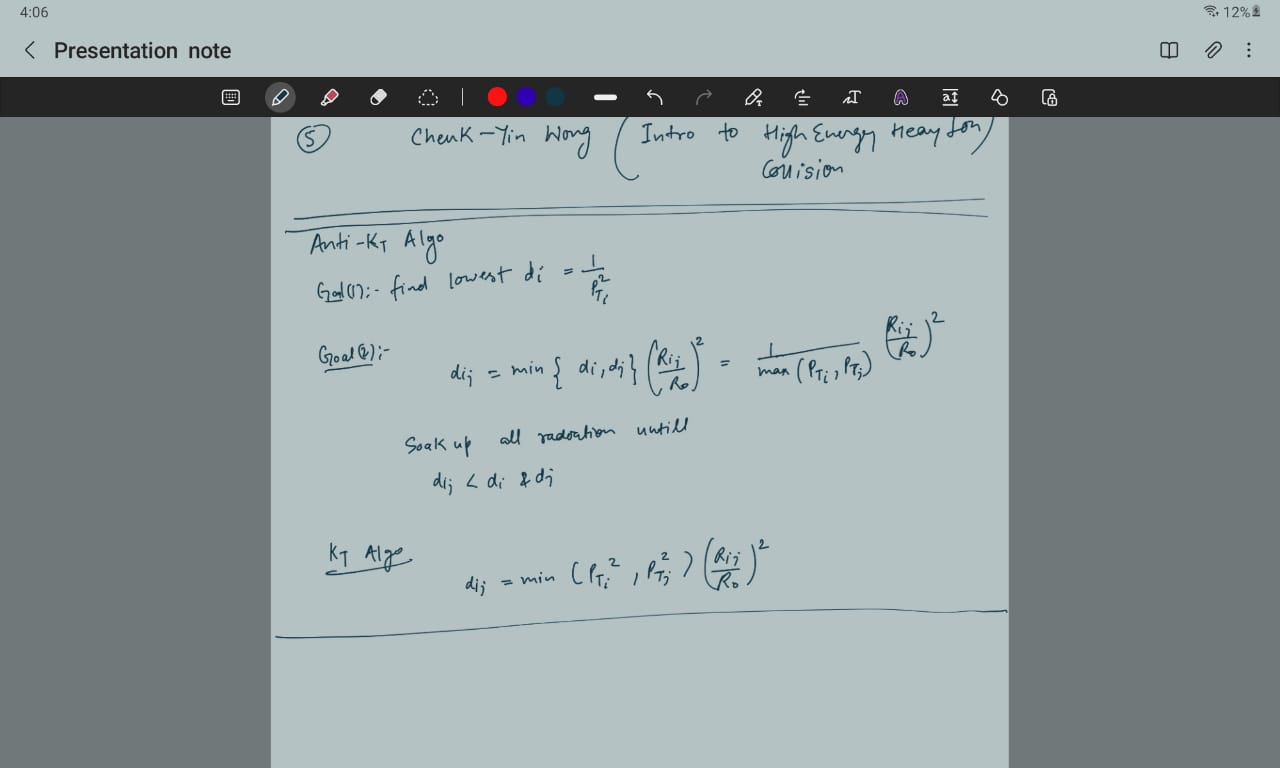 4:06 12%
Presentation note
⑤ Cheuk-Yin Wong (Intro to High Energy Heavy Ion)
Collision
Anti-KT Algo
Goal(1):- find lowest di = 1/P²Ti
Goal(2):- dij = min { di, dj} (Rij/R0)² = 1/max (PTi, PTj) (Rij/R0)²
Soak up all radation untill
dij < di & dj
KT Algo
dij = min (PTi², PTj²) (Rij/R0)²